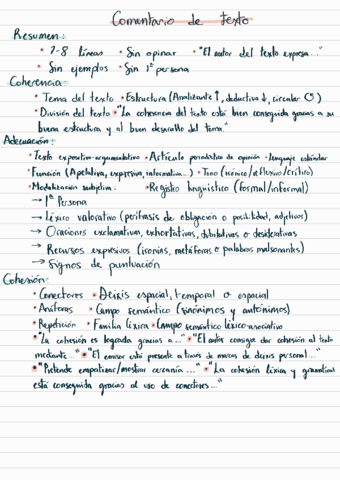 Comentario de texto
Resumen:
• 7-8 líneas • Sin opinar • "El autor del texto expresa..."
• Sin ejemplos • Sin 1ª persona
Coherencia:
• Tema del texto • Estructura (Analizante ↑, deductiva ↓, circular ↻)
• División del texto • "La coherencia del texto está bien conseguida gracias a su
buena estructura y al buen desarrollo del tema."
Adecuación:
• Texto expositivo-argumentativo • Artículo periodístico de opinión • Lenguaje estándar
• Función (Apelativa, expresiva, informativa...) • Tono (irónico/reflexivo/crítico)
• Modalización subjetiva: • Registro lingüístico (formal/informal)
→ 1ª Persona
→ Léxico valorativo (perífrasis de obligación o posibilidad, adjetivos)
→ Oraciones exclamativas, exhortativas, dubitativas o desiderativas
→ Recursos expresivos (ironías, metáforas o palabras malsonantes)
→ Signos de puntuación
Cohesión:
• Conectores • Deixis espacial, temporal o espacial
• Anáforas • Campo semántico (sinónimos y antónimos)
• Repetición • Familia léxica • Campo semántico léxico-asociativo
• "La cohesión es lograda gracias a..." • "El autor consigue dar cohesión al texto
mediante..." • "El emisor está presente a través de marcas de deixis personal..."
• "Pretende empatizar/mostrar cercanía..." • "La cohesión léxica y gramatical
está conseguida gracias al uso de conectores..."